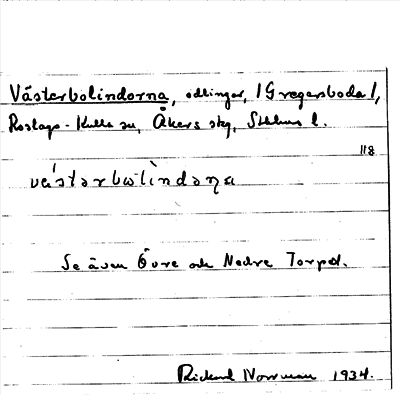 Västerbolindorna, odlingar, /Gregersboda/,
Roslags-Kulla sn, Åkers skg, Sthlms l.
118
vä́stərbolìndoṇa
Se även Övre och Nedre Torpet.
Rickard Norrman 1934.